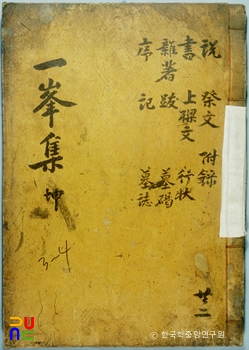 說 祭文 附錄
書 上樑文 行狀
雜著 跋 墓碣
序 記 墓誌
一峯集 坤
3-4
共二
© 한국학중앙연구원